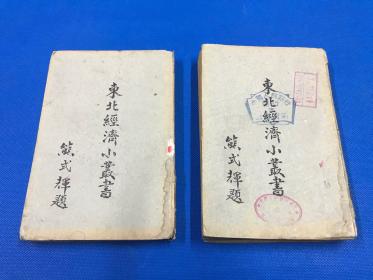 東北經濟小叢書
熊式輝題
東北經濟小叢書
熊式輝題